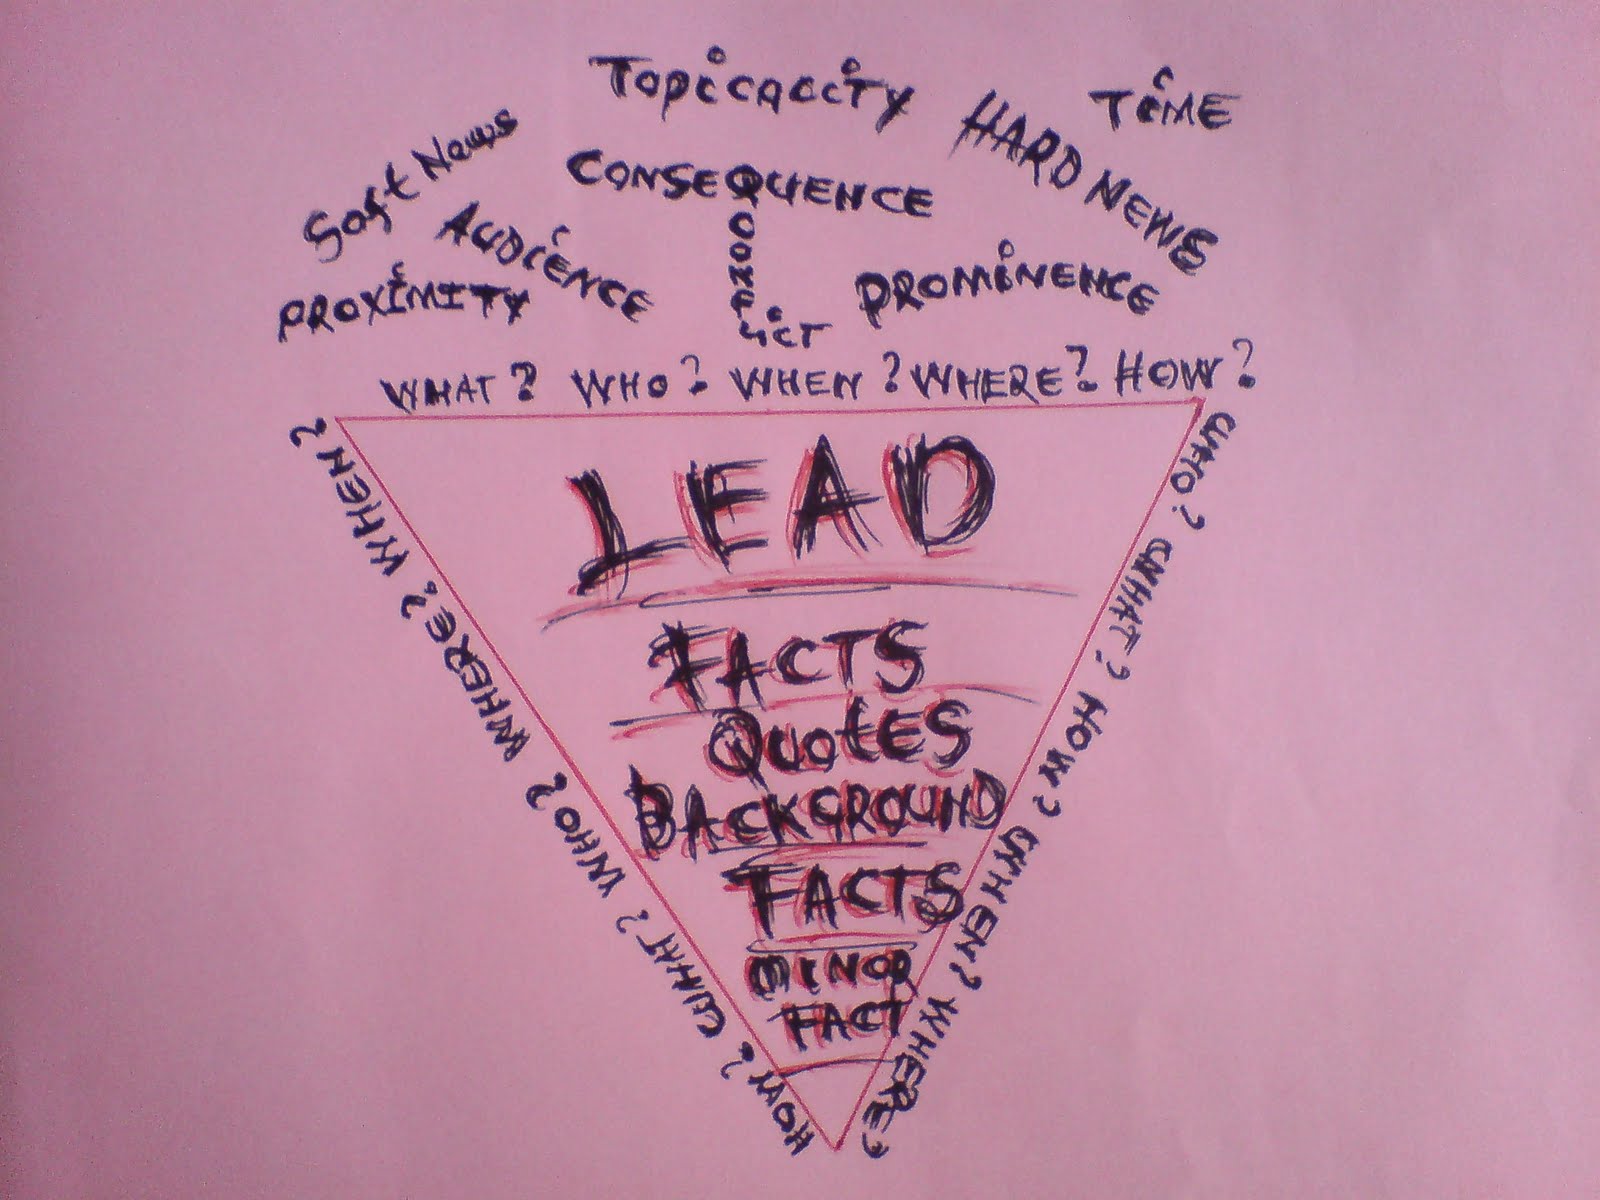 TOPICALITY
TIME
Soft News
HARD NEWS
CONSEQUENCE
AUDIENCE
CONFLICT
PROXIMITY
PROMINENCE
WHAT? WHO? WHEN? WHERE? HOW?
LEAD
FACTS
QUOTES
BACKGROUND
FACTS
MINOR
FACT
HOW? WHAT? WHO? WHERE? WHEN?
WHO? WHAT? HOW? WHEN? WHERE?